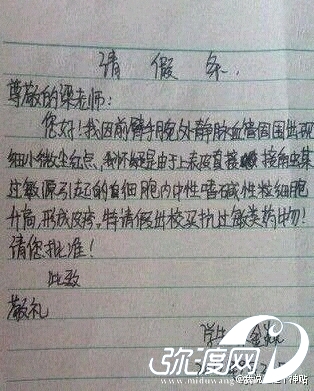 请假条.
尊敬的梁老师:
您好!我因前臂手腕外静脉血管周围出现
细小微尘红点,我怀疑是由于上表皮直接接角虫某
过敏源引起的白细胞内中性嗜碱性粒细胞
升高,形成皮疹,特请假出校买抗过敏类药物!
请您批准!
此致
敬礼
学生
弥渡网